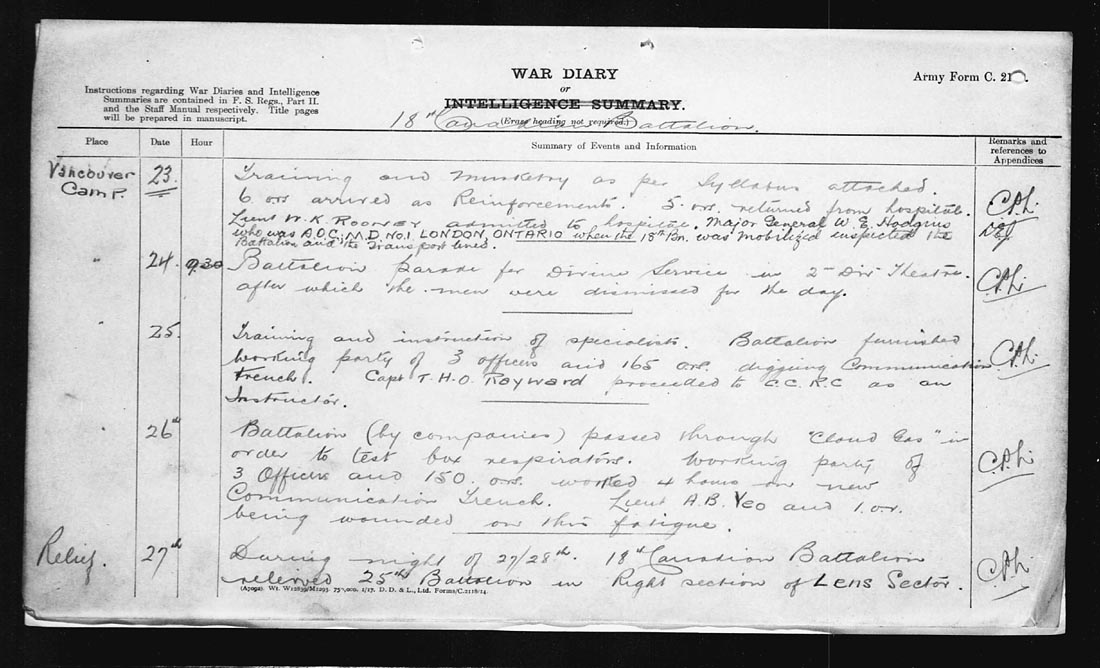 WAR DIARY
Army Form C. 21
or
INTELLIGENCE SUMMARY.
(Erase heading not required.)
18th Canadian Battalion.
Instructions regarding War Diaries and Intelligence
Summaries are contained in F. S. Regs., Part II.
and the Staff Manual respectively. Title pages
will be prepared in manuscript.
Place Date Hour Summary of Events and Information Remarks and references to Appendices
Vancouver Camp. 23. Training and Musketry as per Syllabus attached.
6 ors arrived as Reinforcements. 5 ors. returned from hospital.
Lieut W.K. Rooney admitted to hospital. Major General W.E. Hodgins
who was A.O.C. M.D. No1, LONDON, ONTARIO when the 18th Bn. was mobilized inspected the
Battalion and the Transport lines.
24. 9.30 Battalion parade for Divine Service in 2nd Div Theatre.
after which the men were dismissed for the day.
25. Training and instruction of specialists. Battalion furnished
working party of 3 officers and 165 o.rs. digging Communication
trench. Capt T.H.O. Rayward proceeded to C.C.R.C as an
Instructor.
26th Battalion (by companies) passed through "Cloud Gas" in
order to test box respirators. Working party of
3 Officers and 150 o.rs. worked 4 hours on new
Communication Trench. Lieut A.B. Yeo and 1. or.
being wounded on this fatigue.
Relief. 27th During night of 27/28th. 18th Canadian Battalion
relieved 25th Battalion in Right section of Lens Sector.
D. D. & L., Ltd. Forms/C.2118/14.